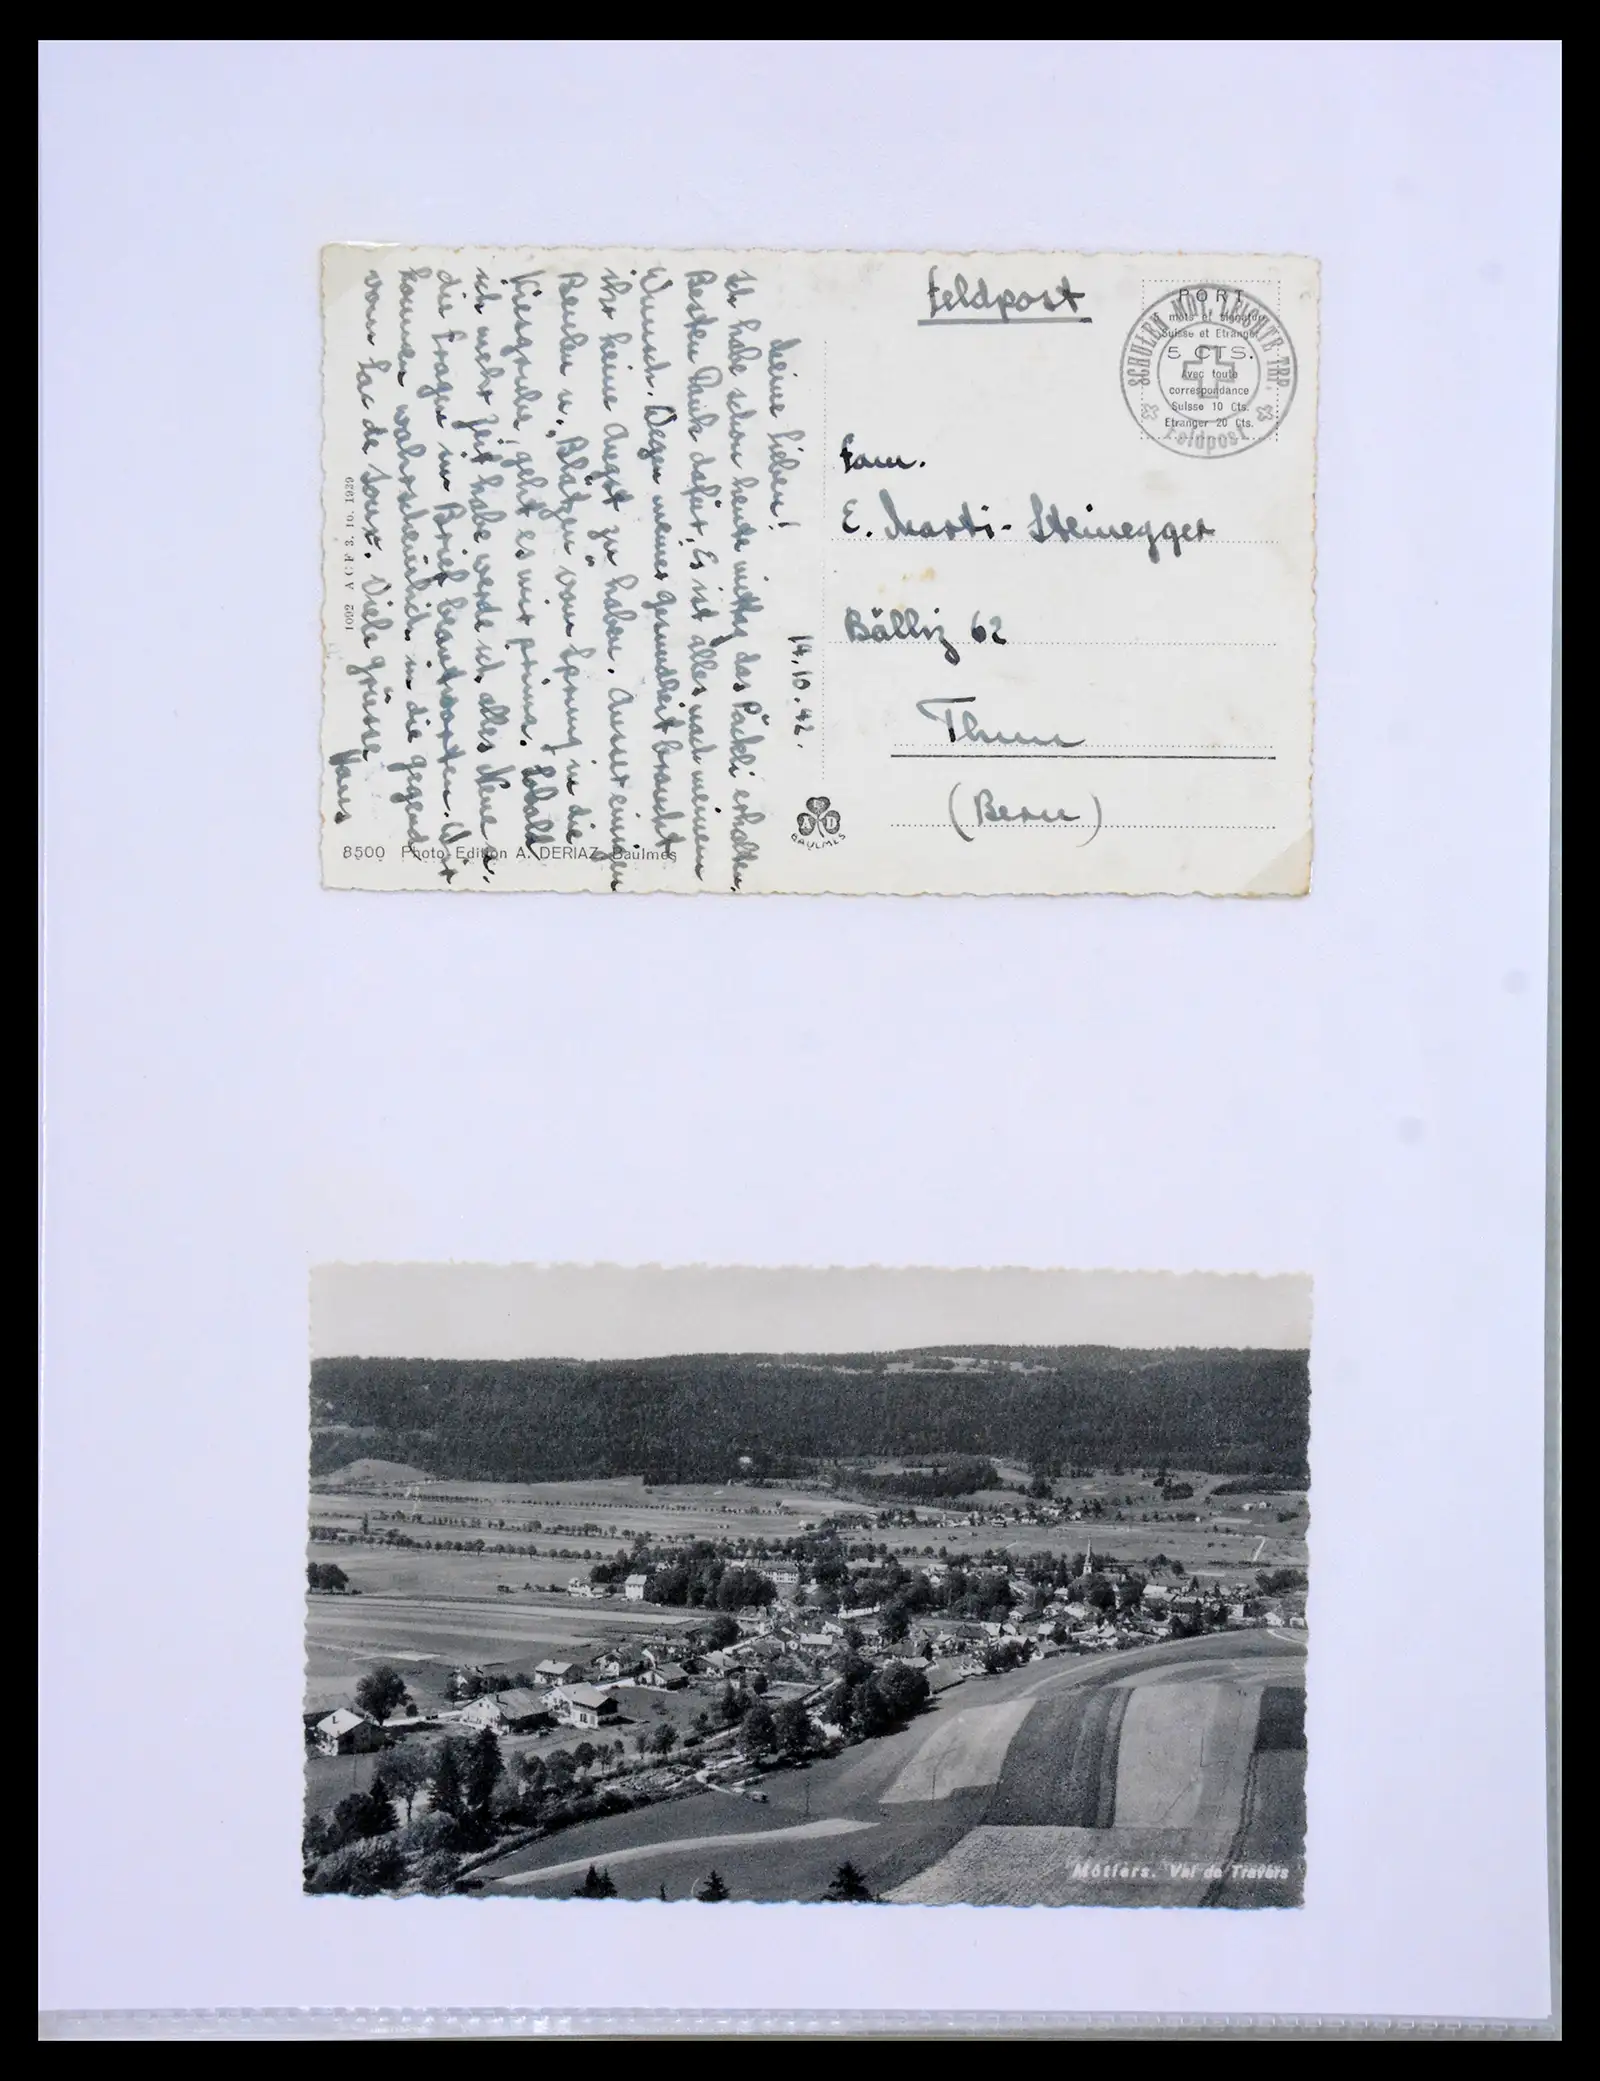 Meine Lieben!
14.10.42.
Ich habe schon heute mittag das Päckli erhalten.
Besten Dank dafür. Es ist alles nach meinem
Wunsch. Wegen meiner gesundheit braucht
ihr keine Angst zu haben. Ausser einigen
Beulen u. "Blätzen" vom Sprung in die
Kiesgrube, geht es mir prima. Sobald
ich mehr Zeit habe werde ich alles Neue u.
die Fragen im Brief beantworten. Wir
kommen wahrscheinlich in die gegend
vom Lac de Joux. Viele grüsse
Hans
1092 A (: F 3. 10. 1939
8500 Photo-Edition A. DERIAZ, Baulmes
A E D
BAULMES
Feldpost
PORT
5 mots et signature
Suisse et Etranger
5 CTS.
Avec toute
correspondance
Suisse 10 Cts.
Etranger 20 Cts.
SCHULEN MOT. LEICHTE TRP.
Feldpost
Fam.
E. Marti-Steinegger
Bälliz 62
Thun
(Bern)
Môtiers. Val de Travers